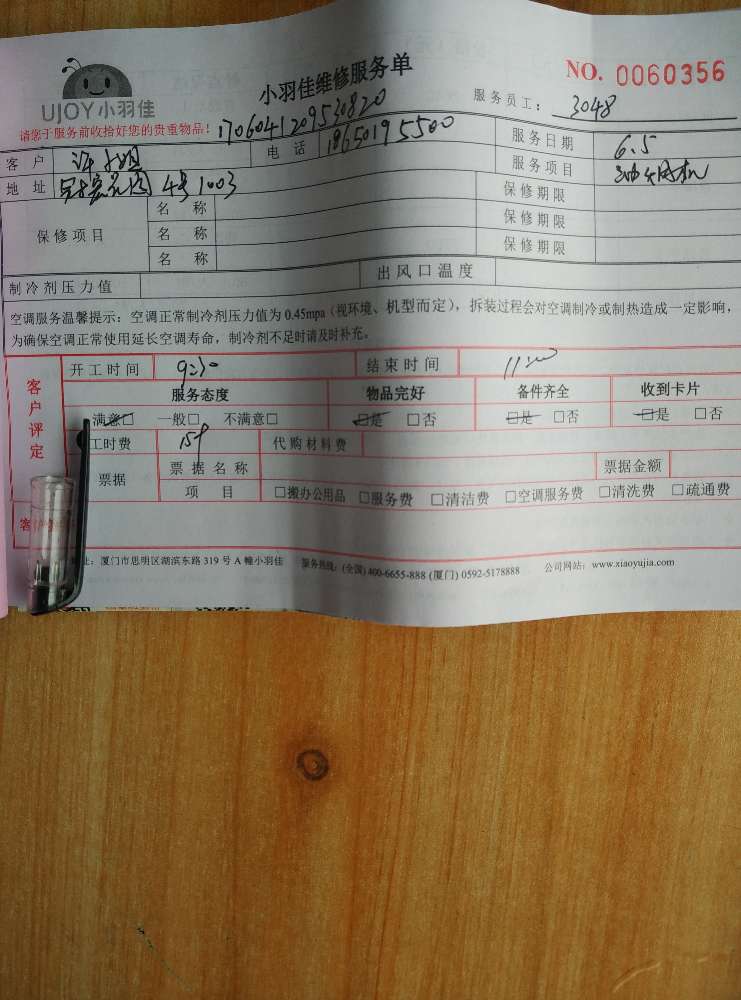 UJOY小羽佳
小羽佳维修服务单
NO. 0060356
请您于服务前收拾好您的贵重物品!
1706041209530820
服务员工: 3048
客户 许小姐 电话 18650195500 服务日期 6.5
地址 4号1003 服务项目 油烟机
保修项目 名称 保修期限
名称 保修期限
名称 保修期限
制冷剂压力值 出风口温度
空调服务温馨提示:空调正常制冷剂压力值为0.45mpa(视环境、机型而定),拆装过程会对空调制冷或制热造成一定影响,
为确保空调正常使用延长空调寿命,制冷剂不足时请及时补充。
客户评定
开工时间 9:30 结束时间 11:00
服务态度 物品完好 备件齐全 收到卡片
满意□ 一般□ 不满意□ □是 □否 □是 □否 □是 □否
工时费 159 代购材料费
票据 票据名称 票据金额
项目 □搬办公用品 □服务费 □清洁费 □空调服务费 □清洗费 □疏通费
客
址:厦门市思明区湖滨东路319号A幢小羽佳 服务热线:(全国)400-6655-888 (厦门) 0592-5178888 公司网站:www.xiaoyujia.com